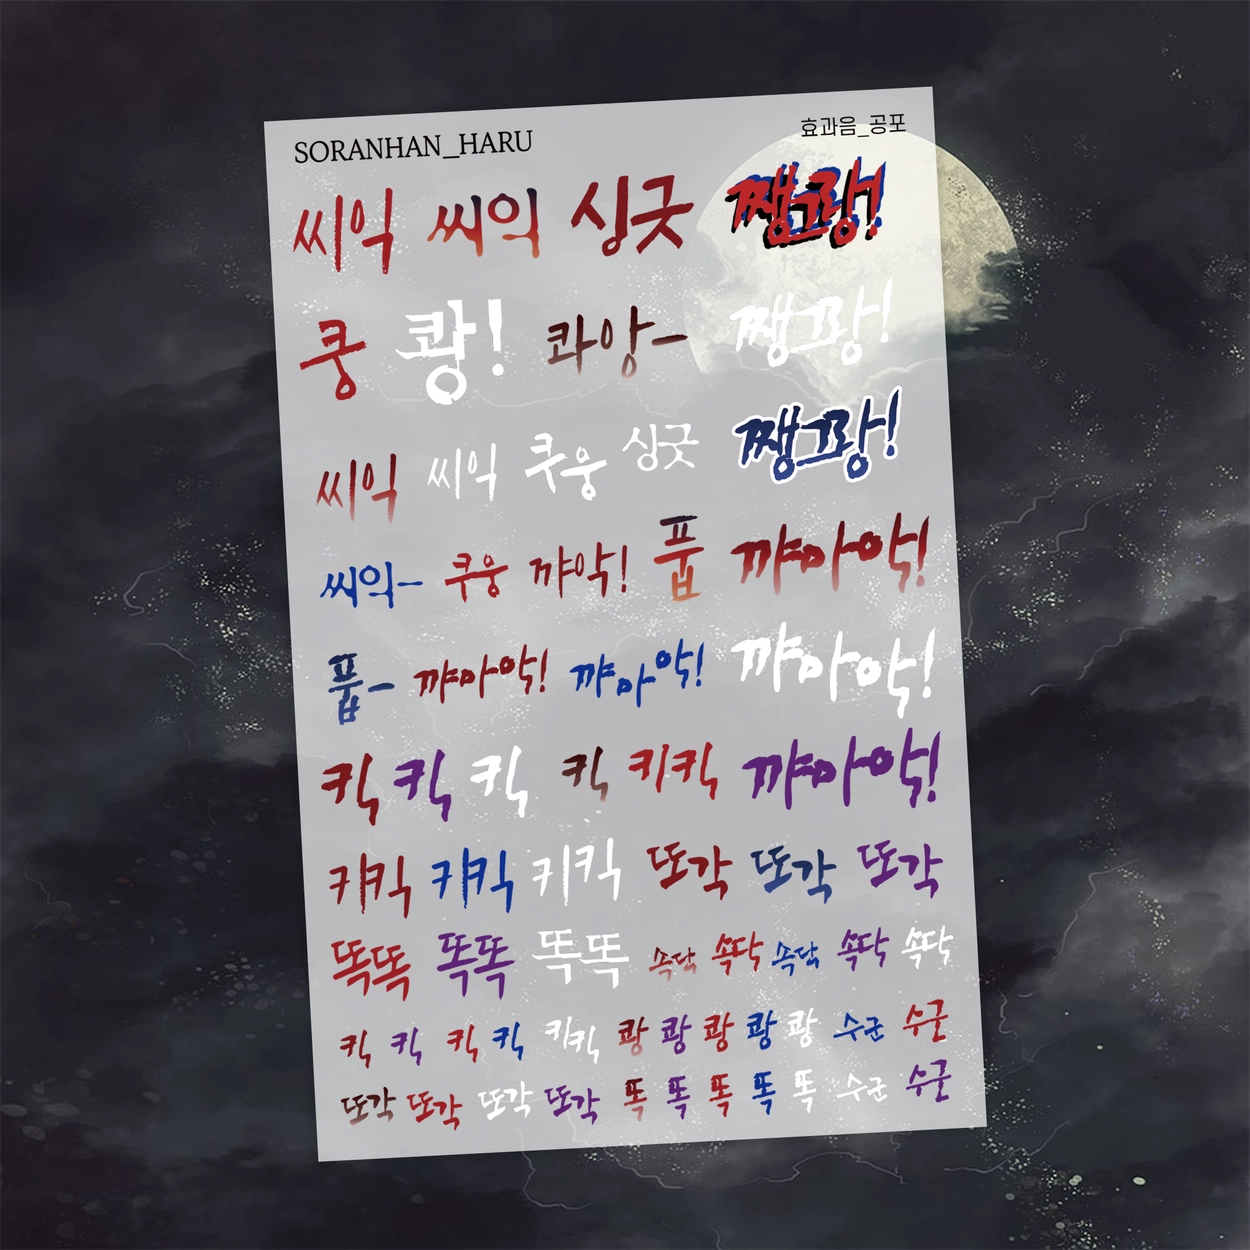 SORANHAN_HARU 효과음_공포
씨익 씨익 싱긋 쨍그랑!
쿵 쾅! 콰앙- 쨍그랑!
씨익 씨익 쿠웅 싱긋 쨍그랑!
씨익- 쿠웅 꺄악! 풉 꺄아악!
풉- 꺄아악! 꺄아악! 꺄아악!
킥 킥 킥 킥 키킥 꺄아악!
캬킥 캬킥 키킥 또각 또각 또각
똑똑 똑똑 똑똑 속닥 속닥 속닥 속닥 속닥
킥 킥 킥 킥 키킥 쾅 쾅 쾅 쾅 쾅 수군 수군
또각 또각 또각 또각 똑 똑 똑 똑 똑 수군 수군